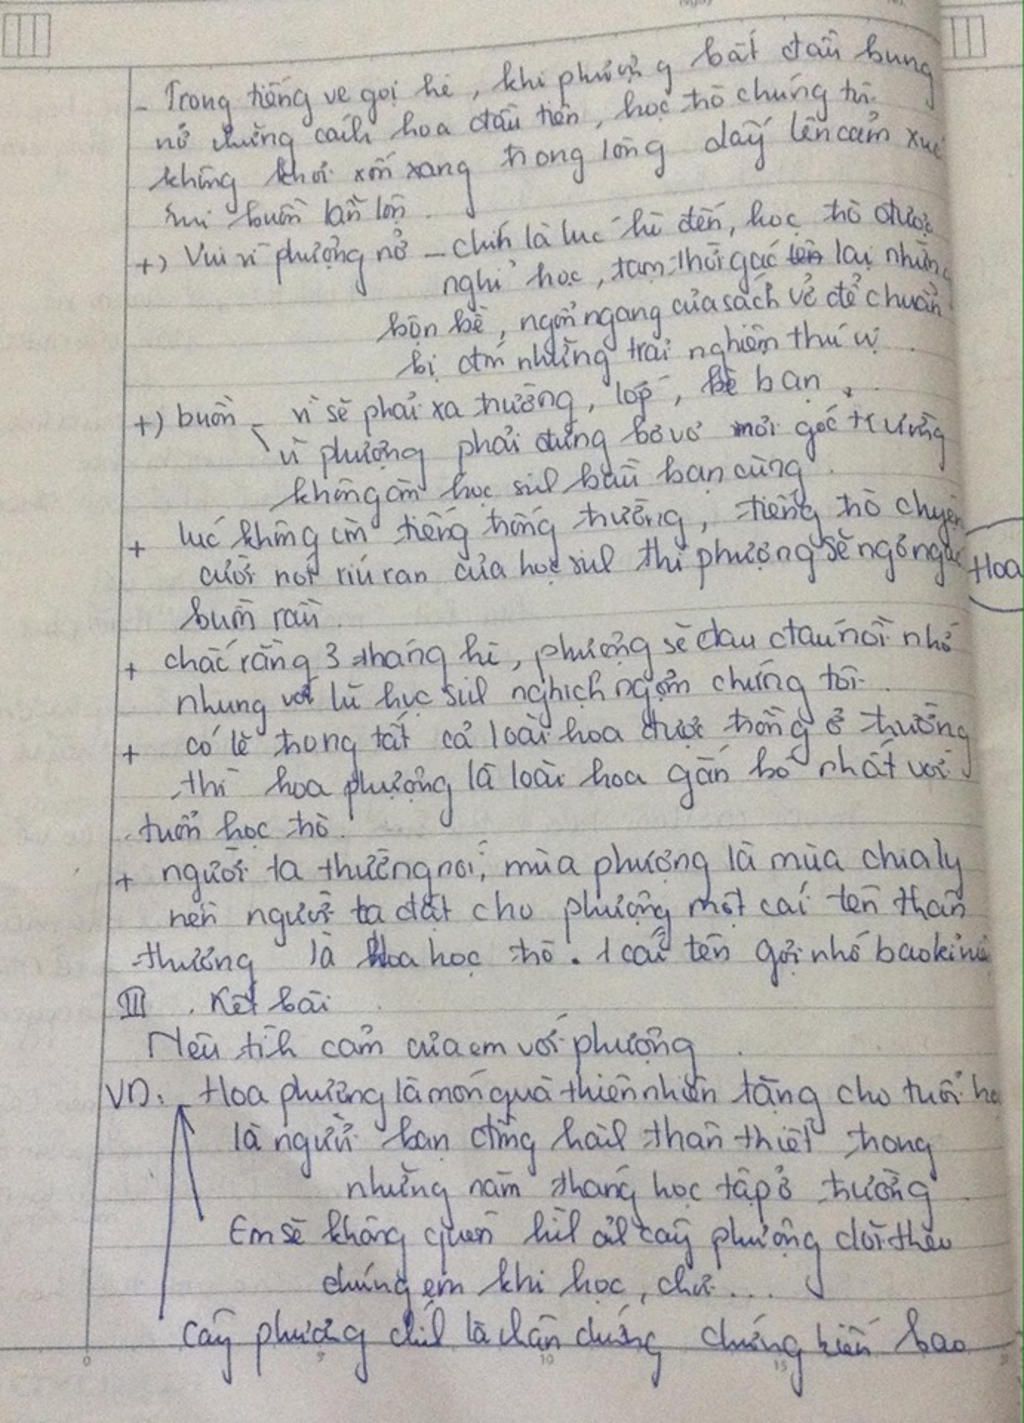 - Trong tiếng ve gọi hè, khi phượng bắt đầu bung
nở những cánh hoa đầu tiên, học trò chúng tôi
không khỏi xốn xang trong lòng dấy lên cảm xúc
vui buồn lẫn lộn.
+) Vui vì phượng nở - chính là lúc hè đến, học trò được
nghỉ học, tạm thời gác lại những
bộn bề, ngổn ngang của sách vở để chuẩn
bị đón những trải nghiệm thú vị.
+) buồn - vì sẽ phải xa trường, lớp, bè bạn.
vì phượng phải đứng bơ vơ một góc trường
không còn học sinh bầu bạn cùng.
+ lúc không còn tiếng trống trường, tiếng trò chuyện
cười nói ríu ran của học sinh thì phượng sẽ ngơ ngác
buồn rầu.
Hoa
+ chắc rằng 3 tháng hè, phượng sẽ đau đáu nỗi nhớ
nhung với lũ học sinh nghịch ngợm chúng tôi.
+ có lẽ trong tất cả loài hoa được trồng ở trường
thì hoa phượng là loài hoa gắn bó nhất với
tuổi học trò.
+ người ta thường nói, mùa phượng là mùa chia ly
nên người ta đặt cho phượng một cái tên thân
thương là Hoa học trò. 1 cái tên gợi nhớ bao kỉ niệm
III. Kết bài
Nêu tình cảm của em với phượng.
VD: - Hoa phượng là món quà thiên nhiên tặng cho tuổi
là người bạn đồng hành thân thiết trong
những năm tháng học tập ở trường.
Em sẽ không quên hình ảnh cây phượng dõi theo
chúng em khi học, chơi...
Cây phượng chính là chân chứng kiến bao